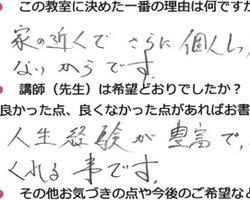 ● この教室に決めた一番の理由は何ですか
家の近くで さらに 個人し
ないからです。
● 講師（先生）は希望どおりでしたか？
良かった点、良くなかった点があればお書
人生経験が豊富で、
くれる事です。
● その他お気づきの点や今後のご希望な